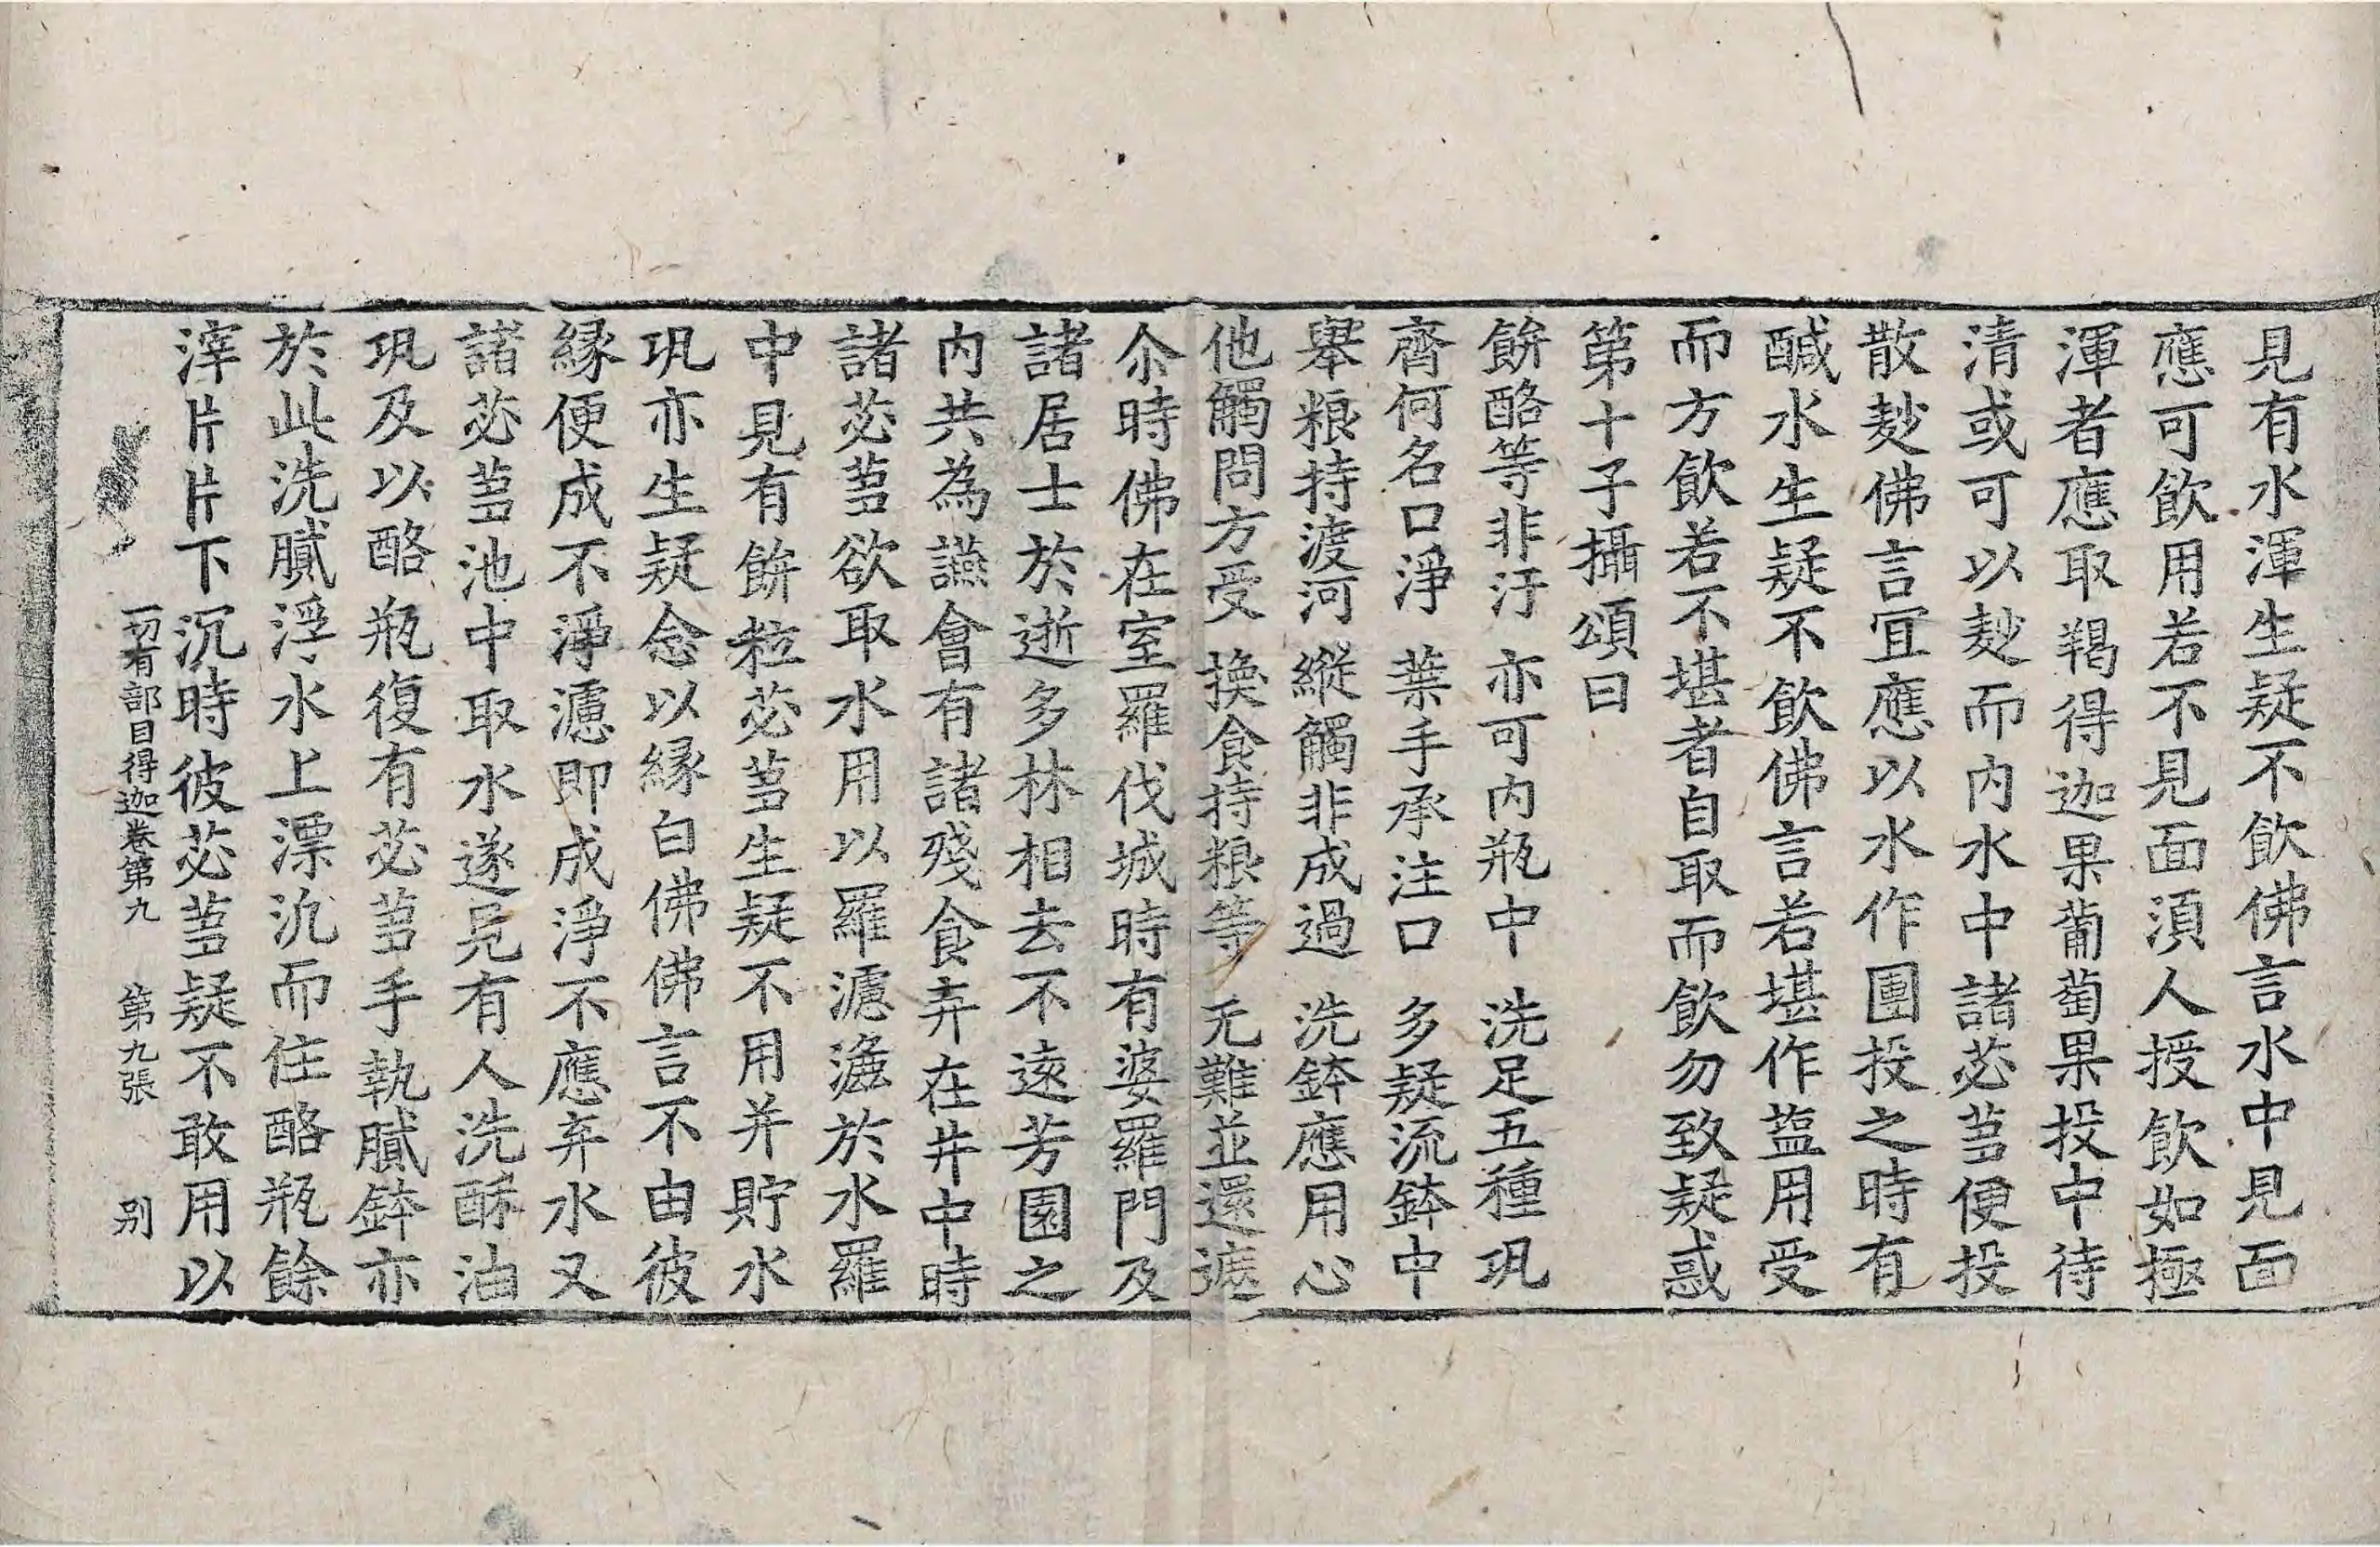 見有水渾生疑不飲佛言水中見面
應可飲用若不見面湏人授飲如極
渾者應取羯得迦果蔔萄果投中待
清或可以麨而内水中諸苾蒭便投
散麨佛言冝應以水作團投之時有
醎水生疑不飲佛言若堪作藍用受
而方飲若不堪者自取而飲勿致疑惑
第十子攝頌曰
餅酪等非汙 亦可内瓶中 洗足五種巩
齊何名口淨 葉手承注口 多疑流鉢中
舉粮持渡河 縱觸非成過 洗鉢應用心
他觸問方受 換食持粮等 无難並還遮
尒時佛在室羅伐城時有婆羅門及
諸居士於逝多林相去不遠芳園之
内共為讌會有諸殘食弃在井中時
諸苾蒭欲取水用以羅濾漉於水羅
中見有餅粒苾蒭生疑不用并貯水
巩亦生疑念以緣白佛佛言不由彼
緣便成不淨濾即成淨不應弃水又
諸苾蒭池中取水遂見有人洗酥油
巩及以酪瓶復有苾蒭手執膩鉢亦
於此洗膩浮水上漂氿而住酪瓶餘
滓片片下沉時彼苾蒭疑不敢用以
一切有部目得迦卷第九 第九張 别